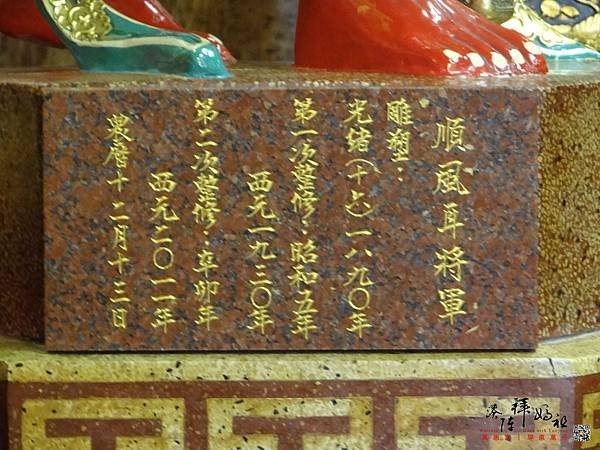 順風耳將軍
雕塑：
光緒(十六)一八九〇年
第一次整修：昭和五年
西元一九三〇年
第二次整修：辛卯年
西元二〇一一年
農曆十二月十三日
拜媽祖